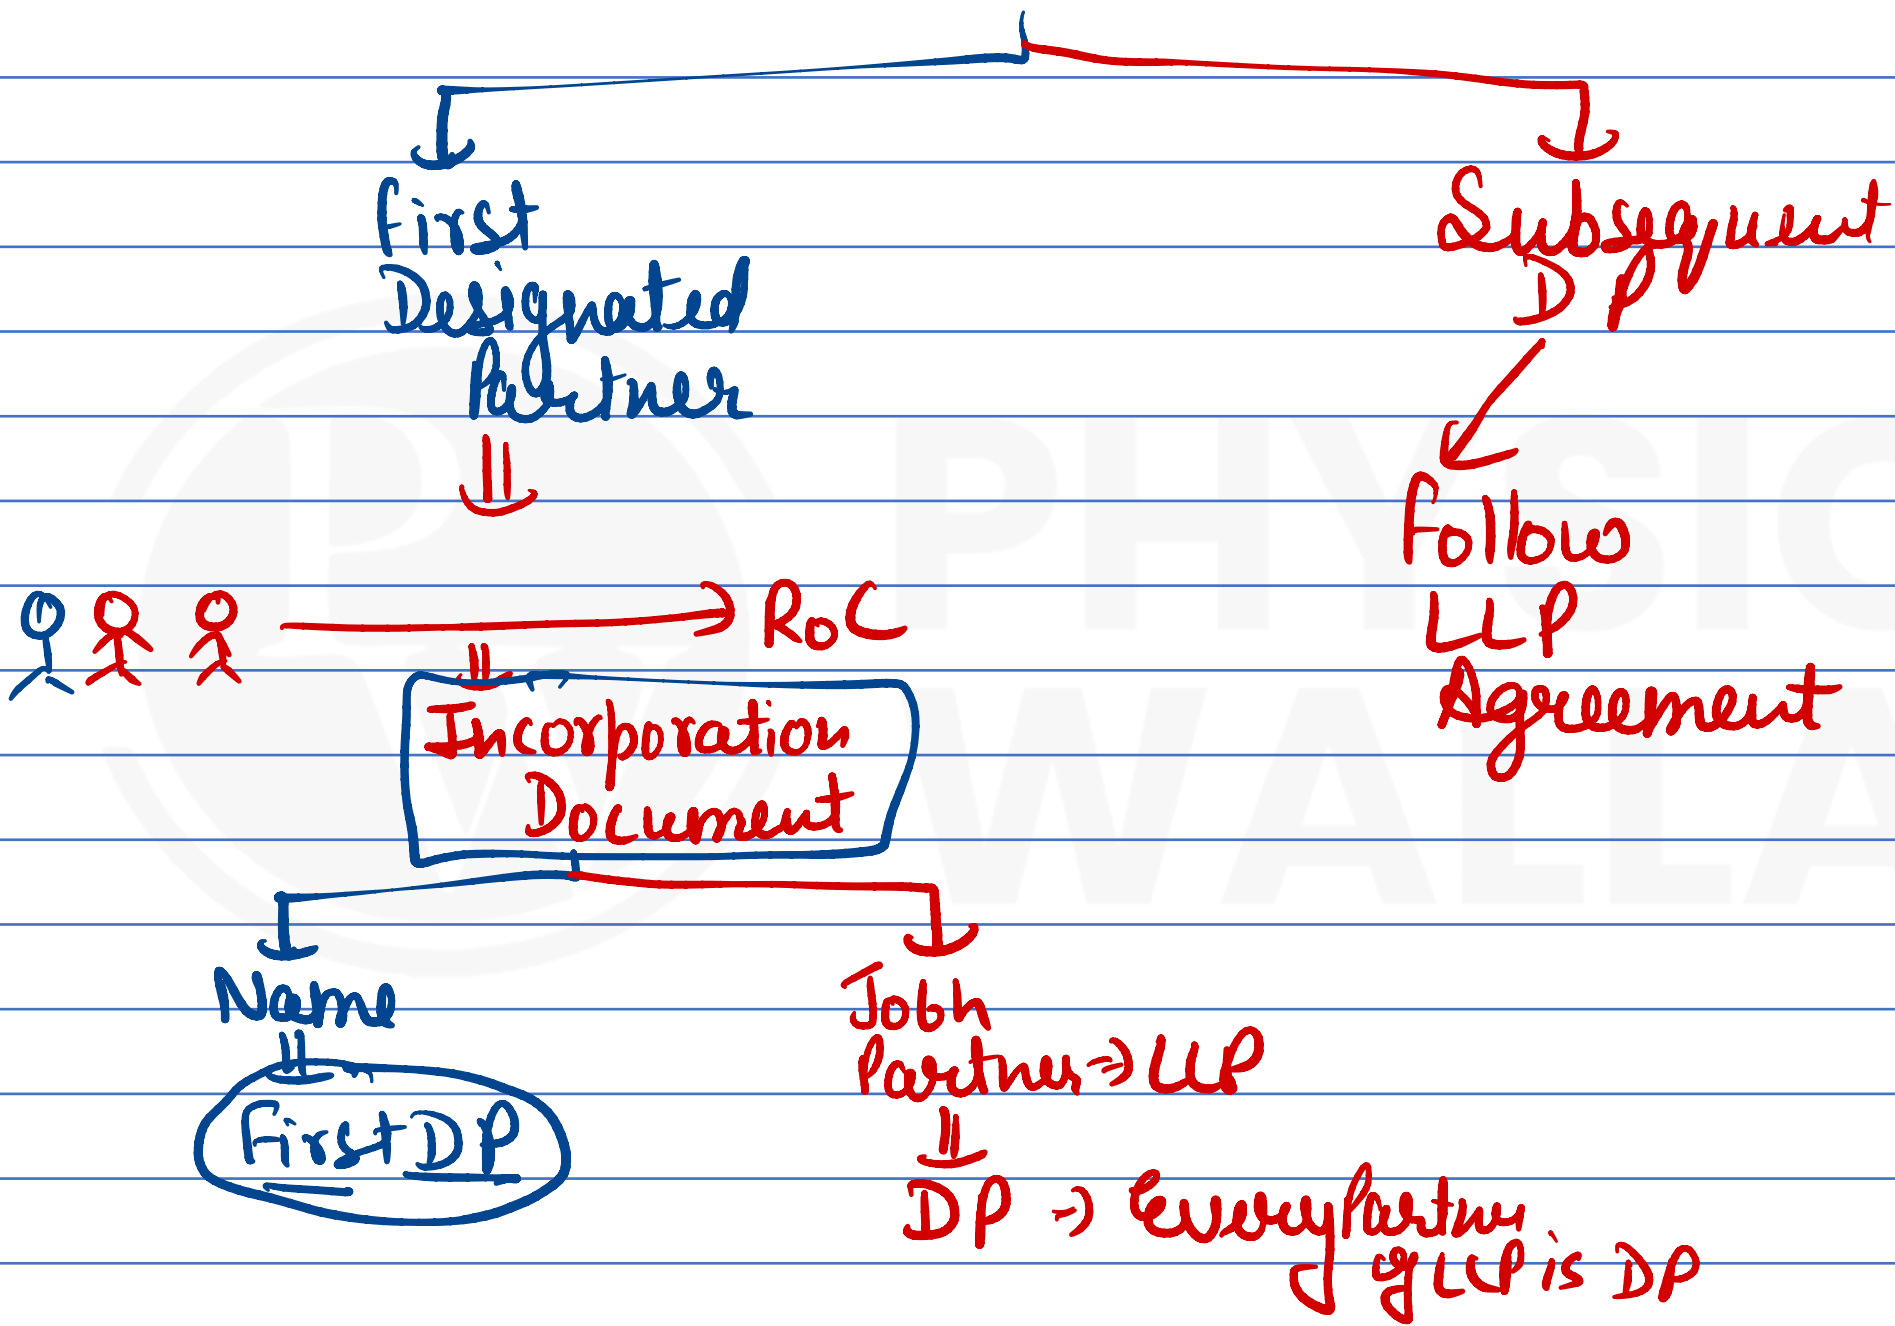 First
Designated
Partner
Subsequent
DP
Follow
LLP
Agreement
RoC
Incorporation
Document
Name
First DP
Jobh
Partner → LLP
DP → Every Partner
of LLP is DP
PHYSIC
WALLA